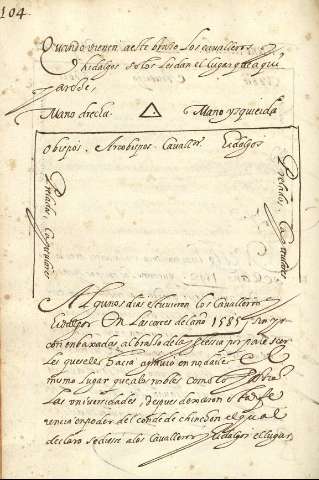 104
Quando vienen a este braso Los cavalleros
y hidalgos se los les dan el lugar que aqui
parece,
Mano drecha. Mano yzquierda
obispos. Arcobispos. Cavaller. hidalgos
Prelados, Capitulares
Prelados, Capitulares
Algunos dias estuvieron los Cavalleros
hidalgos En Las cortes del año 1585
con enbaxadas, al braso de la Iglesia por
les que se les hacia en no dalles El
mismo lugar que a los nobles como lo
Las universidades, despues
en poder del conde de chinchon el qual
declaro se diesse a los Cavalleros hidalgos el lugar